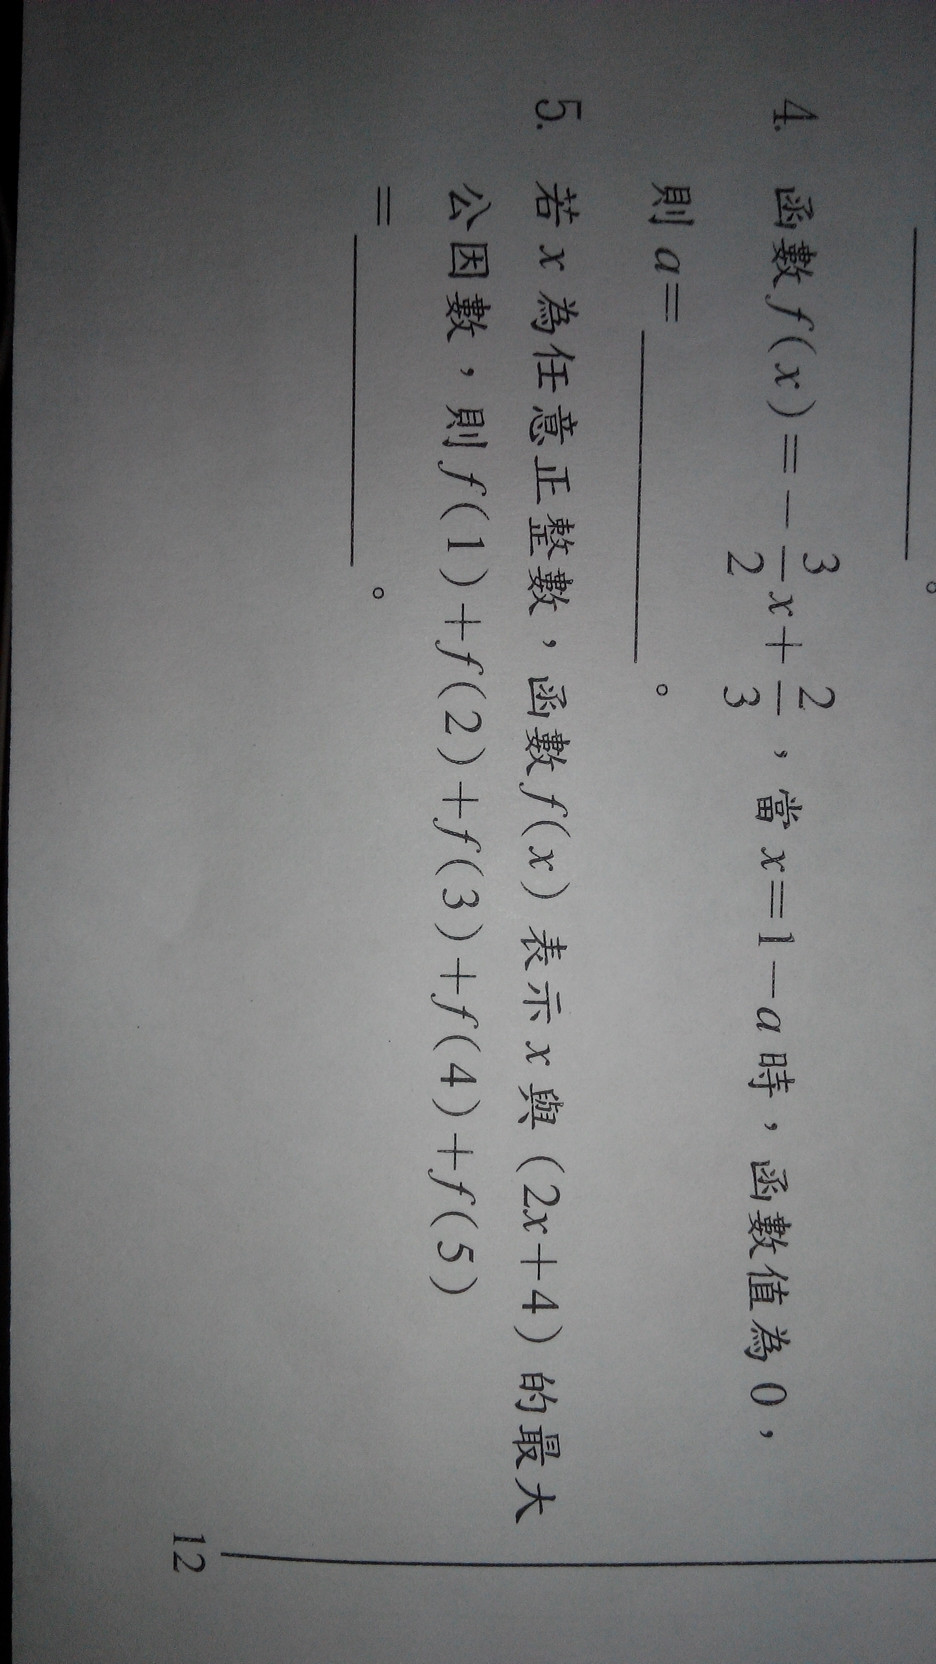 。
4. 函數 f(x)=-3/2x+2/3,當 x=1-a 時,函數值為 0,
則 a=。
5. 若 x 為任意正整數,函數 f(x) 表示 x 與 (2x+4) 的最大
公因數,則 f(1)+f(2)+f(3)+f(4)+f(5)
=。
12